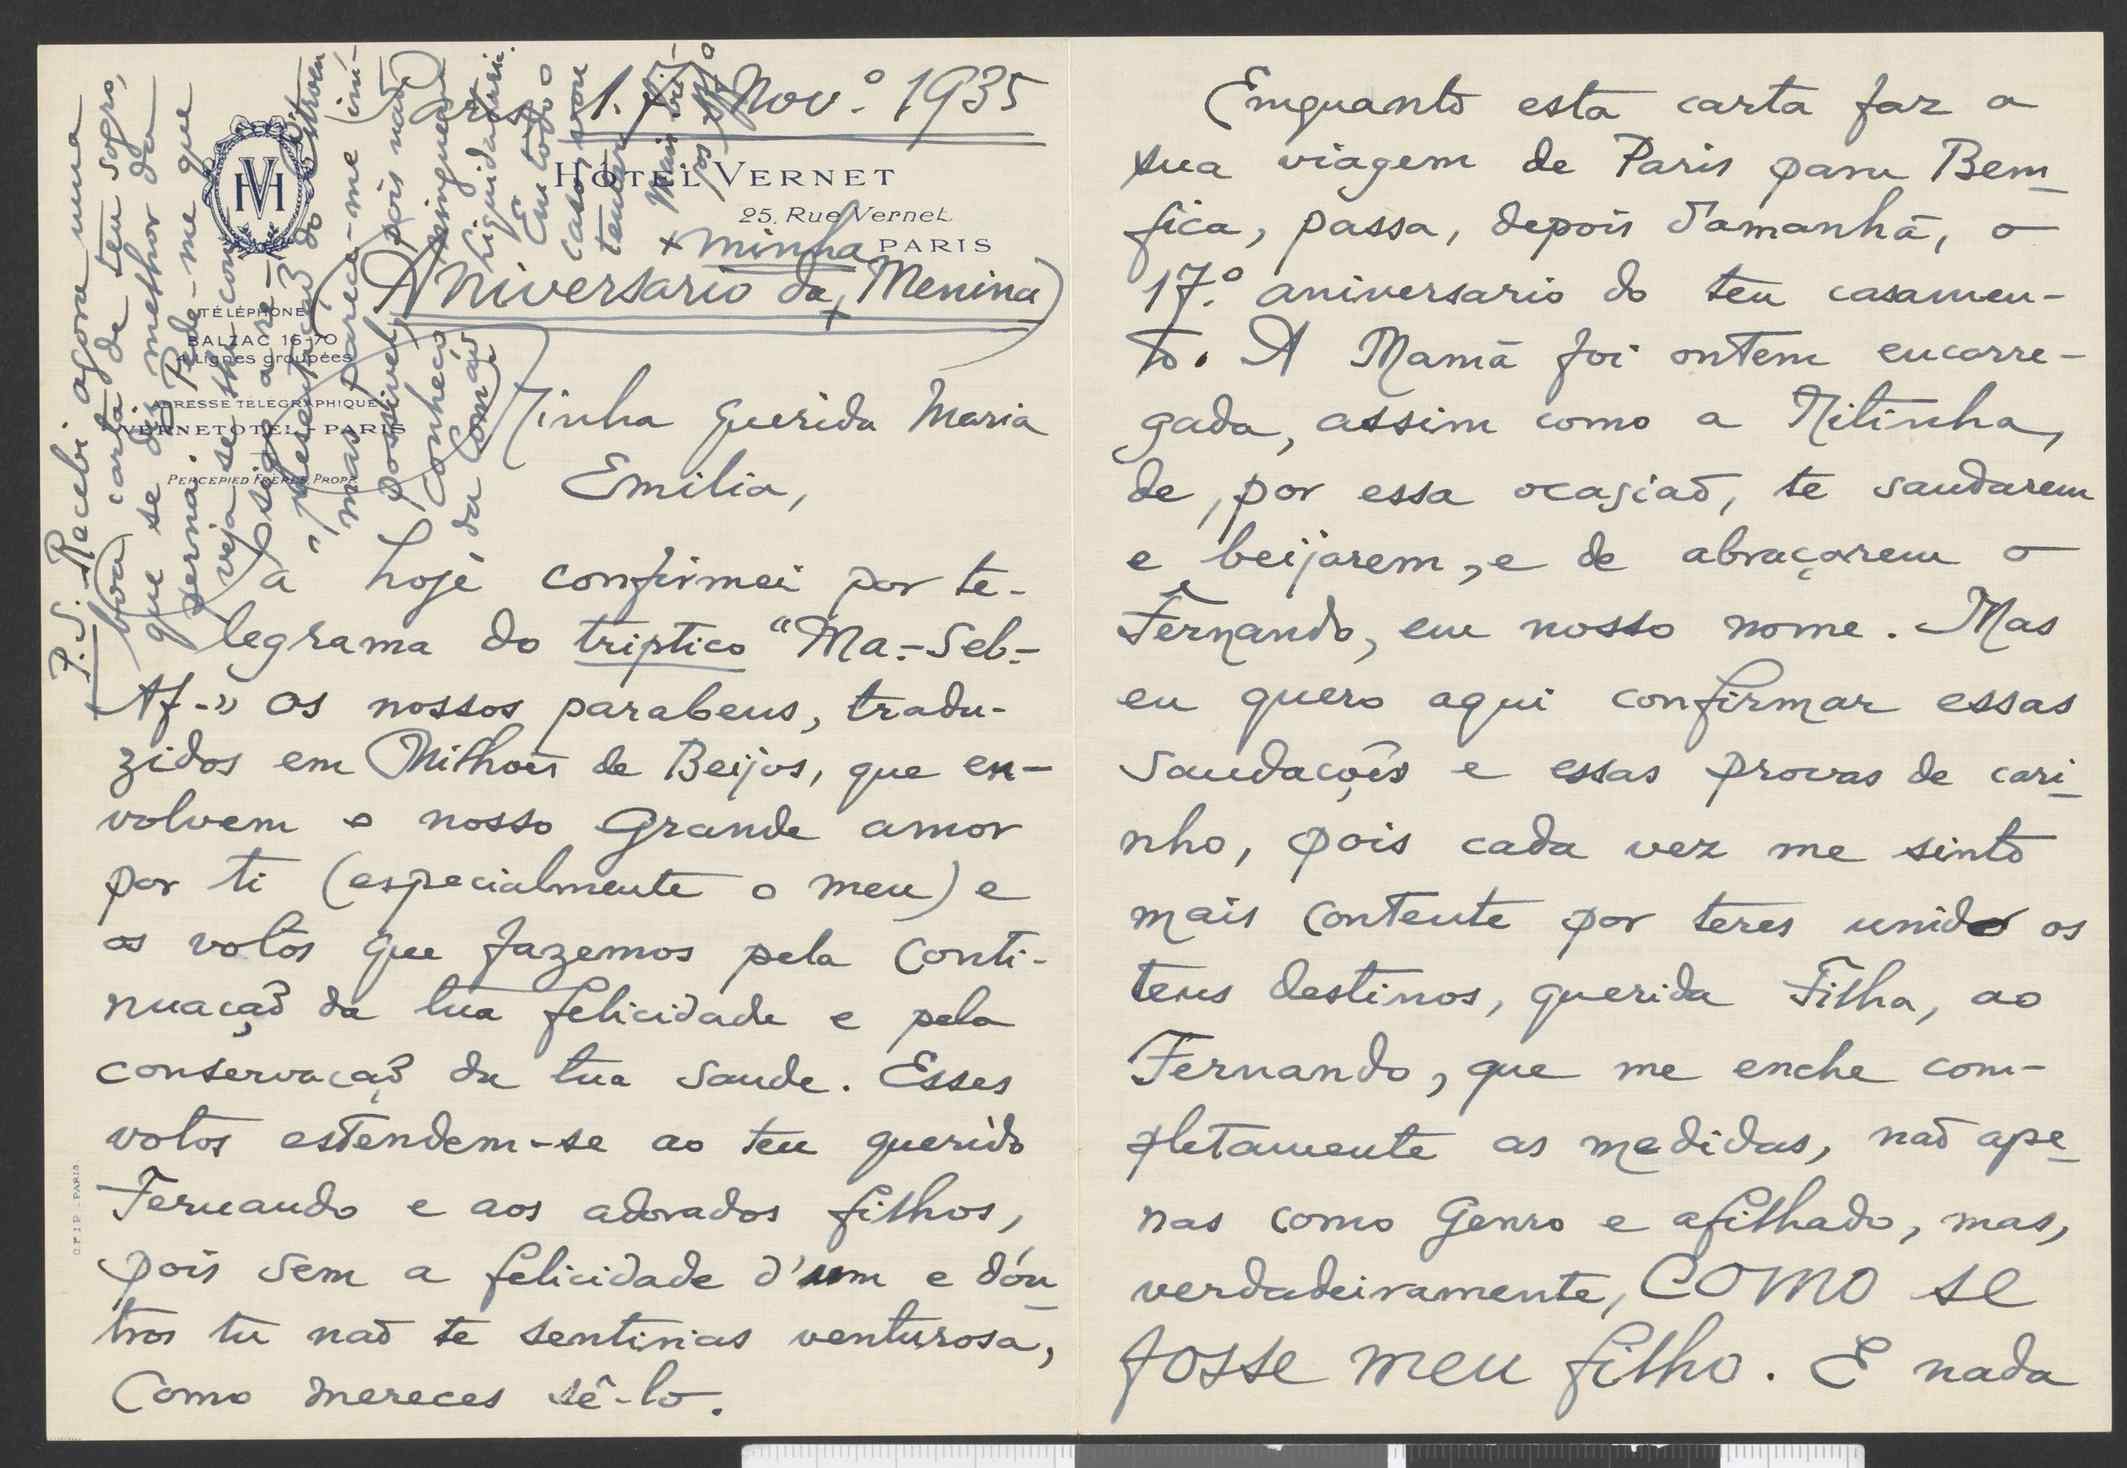 Paris, 1.7 Nov.º 1935
HOTEL VERNET
25, Rue Vernet
PARIS
TÉLÉPHONE
BALZAC 16-70
4 Lignes groupées
ADRESSE TÉLÉGRAPHIQUE
VERNETOTEL-PARIS
PERCEPIED FRÈRES, PROPR.
x minha
(Aniversario da x Menina)
Minha querida Maria
Emilia,
Já hoje confirmei por te-
legrama do triptico "Ma.-Seb.-
Af.-" os nossos parabens, tradu-
zidos em Milhões de Beijos, que en-
volvem o nosso Grande amor
por ti (especialmente o meu) e
os votos que fazemos pela conti-
nuação da tua felicidade e pela
conservação da tua saude. Esses
votos estendem-se ao teu querido
Fernando e aos adorados filhos,
pois sem a felicidade d'um e d'ou-
tros tu não te sentirias venturosa,
como mereces sê-lo.
O.F.I.P. - PARIS
P.S. - Recebi agora uma
boa carta de teu sogro,
que se diz melhor da
perna. Pede-me que
veja se lhe consigo a re-
presentação do Citroen
mas parece-me im-
possivel, pois não
conheço ninguem
da Comão Liquidataria.
Em todo o
caso vou
tentar
Mais bei-
jos do
Enquanto esta carta faz a
sua viagem de Paris para Bem-
fica, passa, depois d'amanhã, o
17.º aniversario do teu casamen-
to. A Mamã foi ontem encarre-
gada, assim como a Mitinha,
de, por essa ocasião, te saudarem
e beijarem, e de abraçarem o
Fernando, em nosso nome. Mas
eu quero aqui confirmar essas
saudações e essas provas de cari-
nho, pois cada vez me sinto
mais contente por teres unido os
teus destinos, querida Filha, ao
Fernando, que me enche com-
pletamente as medidas, não ape-
nas como Genro e afilhado, mas,
verdadeiramente, COMO se
fosse meu filho. E nada